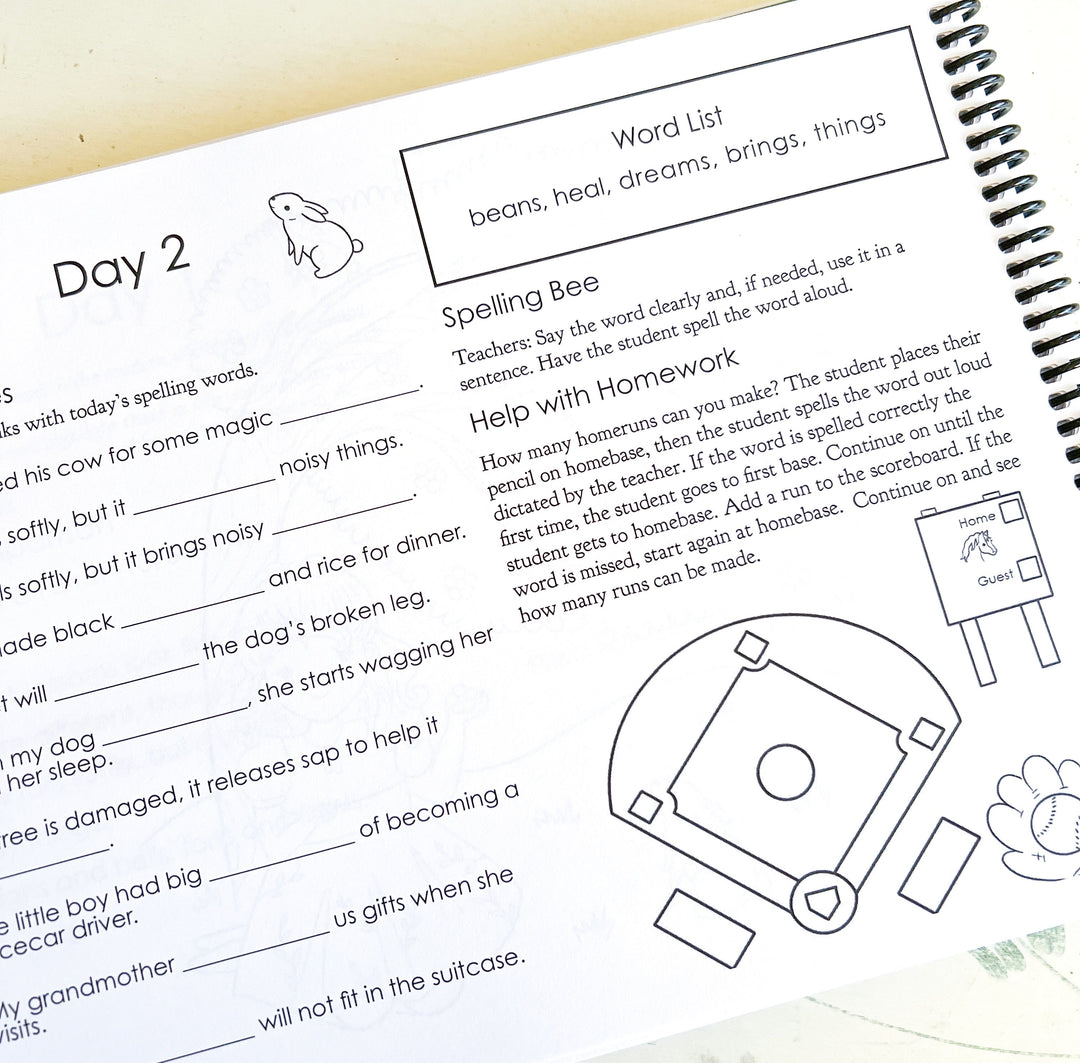 Day 2
with today's spelling words.
his cow for some magic ____.
softly, but it ____ noisy things.
softly, but it brings noisy ____.
black ____ and rice for dinner.
will ____ the dog's broken leg.
my dog ____, she starts wagging her
her sleep.
is damaged, it releases sap to help it
____.
little boy had big ____ of becoming a
driver.
My grandmother ____ us gifts when she
visits.
____ will not fit in the suitcase.
Word List
beans, heal, dreams, brings, things
Spelling Bee
Teachers: Say the word clearly and, if needed, use it in a
sentence. Have the student spell the word aloud.
Help with Homework
How many homeruns can you make? The student places their
pencil on homebase, then the student spells the word out loud
dictated by the teacher. If the word is spelled correctly the
first time, the student goes to first base. Continue on until the
student gets to homebase. Add a run to the scoreboard. If the
word is missed, start again at homebase. Continue on and see
how many runs can be made.
Home
Guest